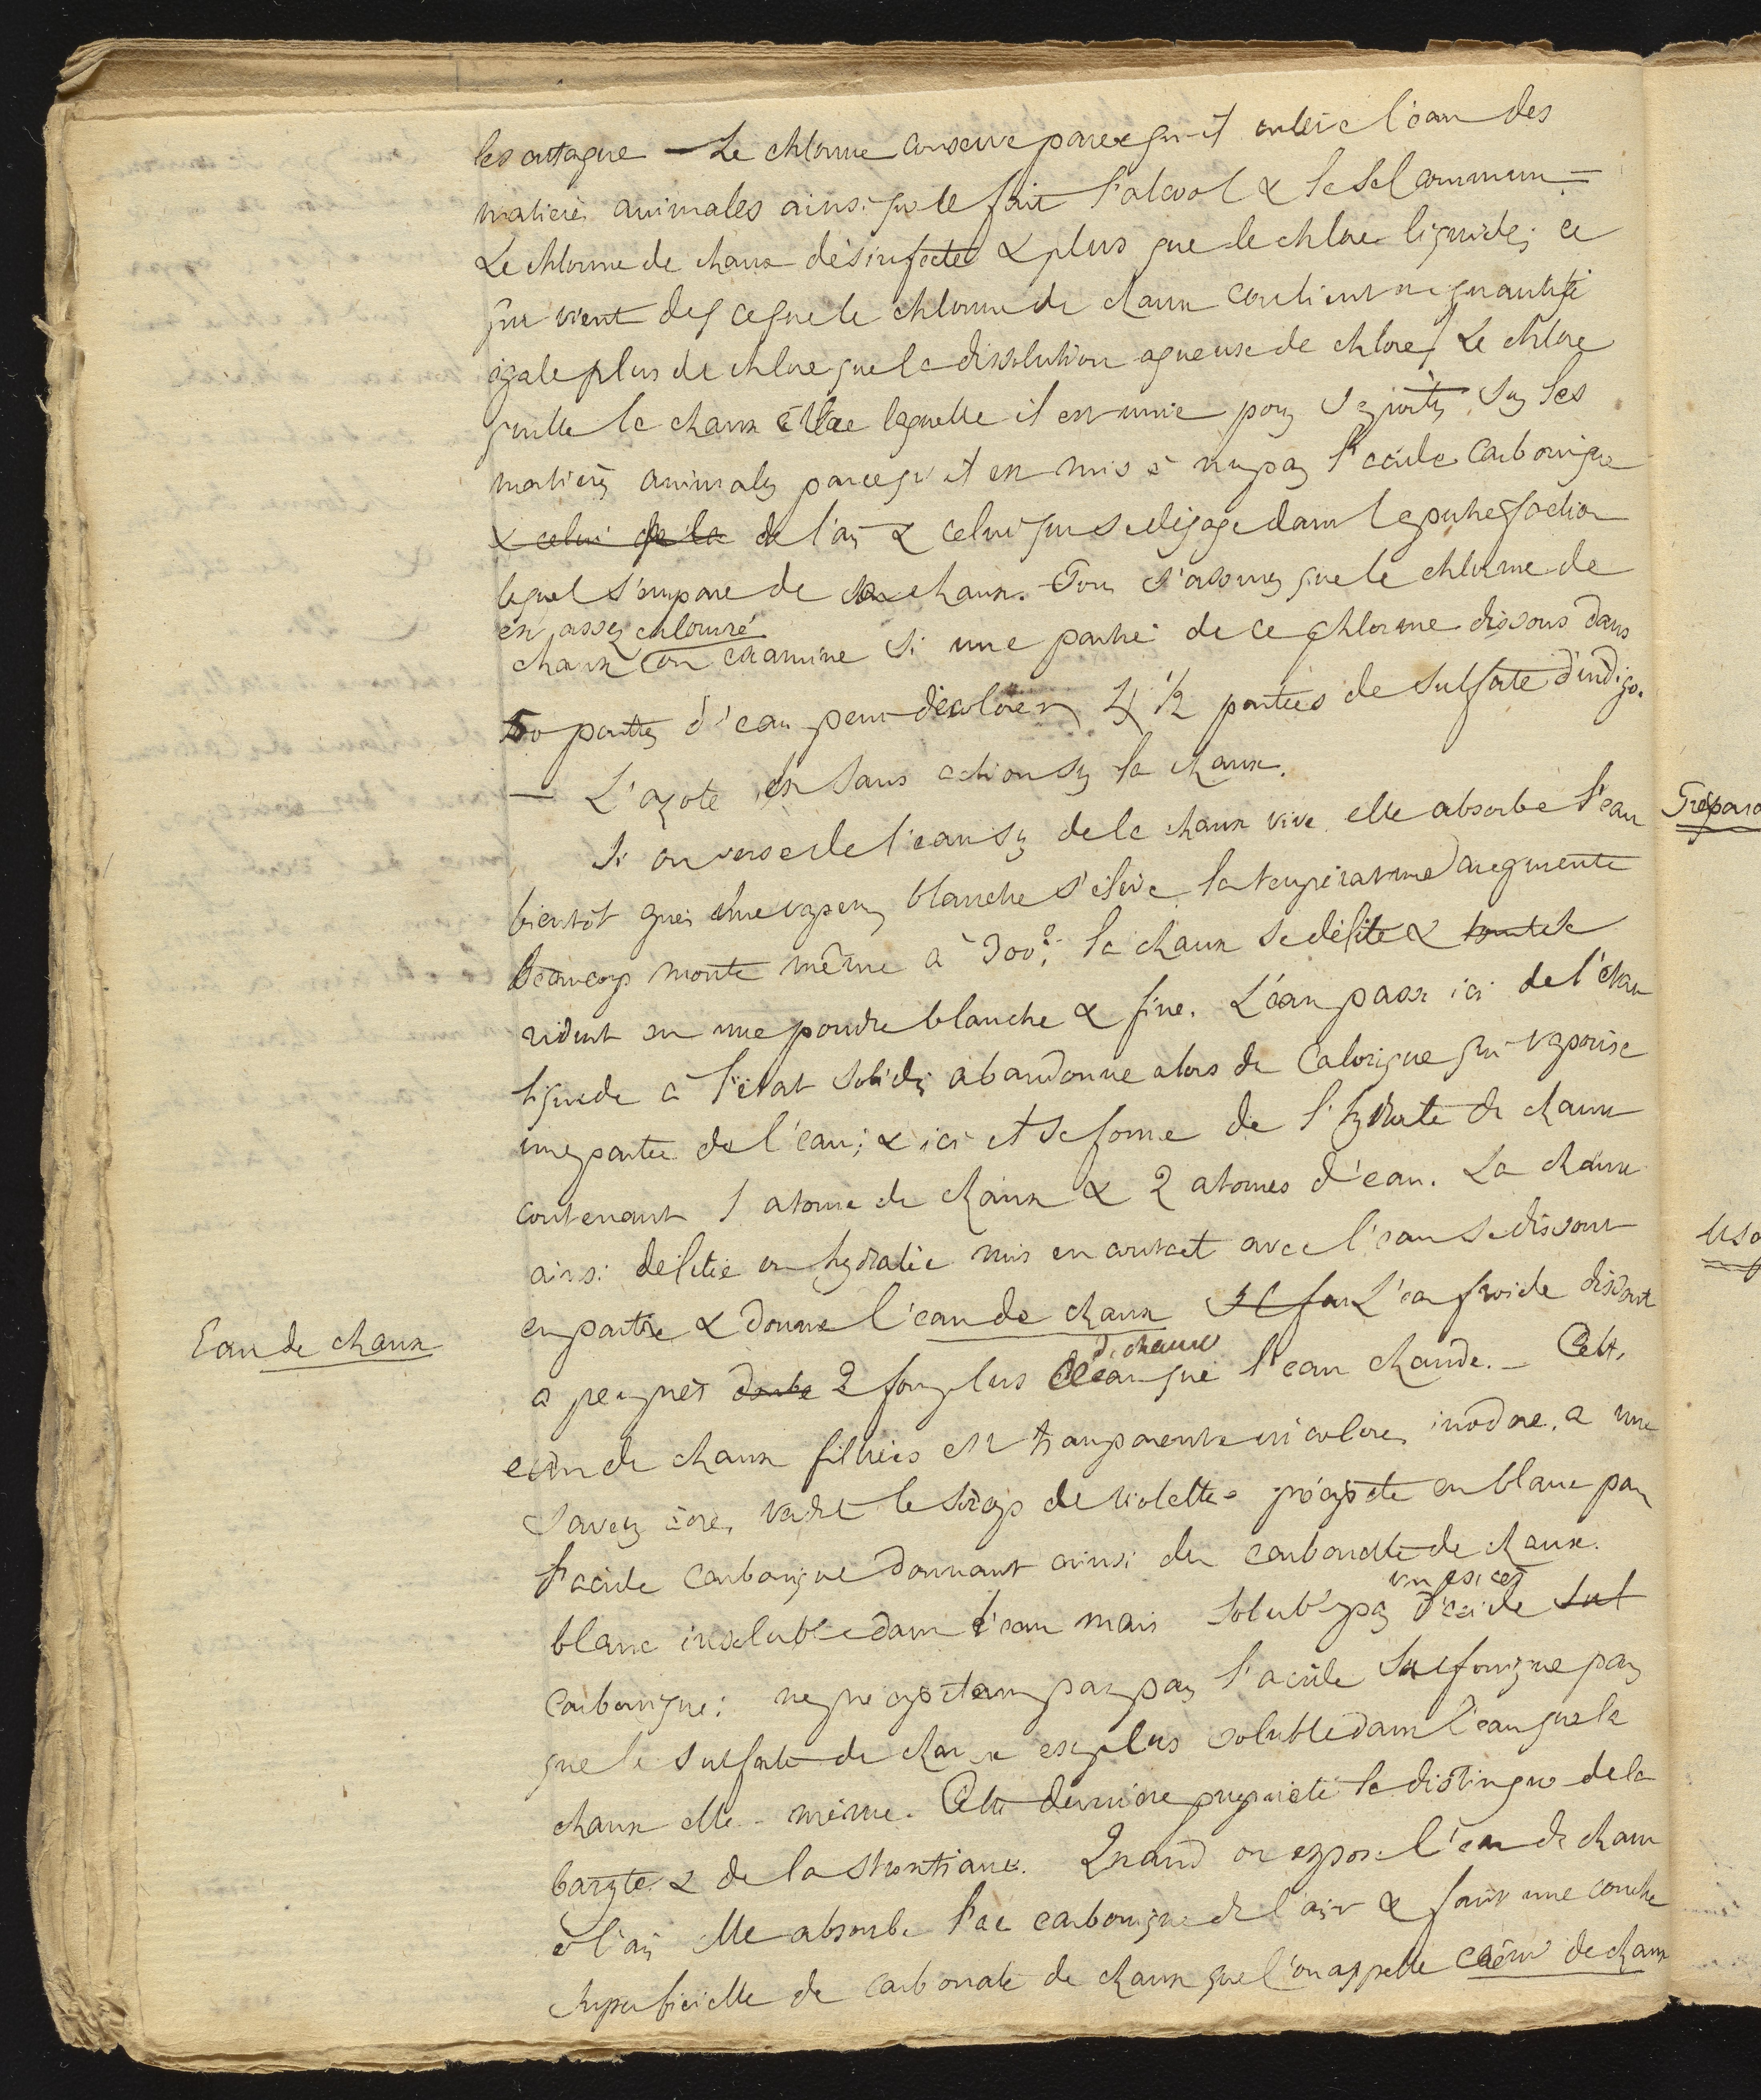 les attaque — Le chlorure conserve parce qu'il enleve l'eau des
matieres animales ainsi que le fait l'alcool & le sel commun —
Le chlorure de chaux désinfecte & plus que le chlore liquide; ce
qui vient de ce que le chlorure de chaux contient a quantité
égale plus de chlore que la dissolution aqueuse de chlore. Le chlore
quitte la chaux à laquelle il est unie pour se porter sur les
matières animales parcequ'il est mis à nu par l'acide carbonique
& celui de la de l'air & celui qui se dégage dans la putrefaction
lequel s'empare de la chaux. Pour s'assurer que le chlorure de
est assez chloruré
chaux on examine si une partie de ce chlorure dissous dans
50 parties d'eau peut décolorer 4 1/2 parties de sulfate d'indigo.
— L'azote est sans action sur la chaux.
Si on verse de l'eau sur de la chaux vive elle absorbe l'eau
bientôt après une vapeur blanche s'élève la température augmente
beaucoup monte même à 300°. la chaux se délite &
réduit en une poudre blanche & fine. L'eau passe ici de l'état
liquide à l'état solide, abandonne alors de calorique qui vaporise
une partie de l'eau; & ici il se forme de l'hydrate de chaux
contenant 1 atome de chaux & 2 atomes d'eau. La chaux
ainsi délitée ou hydratée mis en contact avec l'eau se dissout
en partie & donne l'eau de chaux Il faut L'eau froide dissout
Eau de chaux
de chaux
a peu près double 2 fois plus que l'eau chaude. — Cette
eau de chaux filtrée est transparente incolore, inodore, a une
saveur âcre, verdit le sirop de violettes précipite en blanc par
l'acide carbonique donnant ainsi du carbonate de chaux.
un excès
blanc insoluble dans l'eau mais soluble par d'acide sul
carbonique: ne précipitant pas par l'acide sulfurique par
que le sulfate de chaux est plus soluble dans l'eau que la
chaux elle-même. Cette dernière propriété la distingue de la
baryte & de la strontiane. Quand on expose l'eau de chaux
à l'air elle absorbe l'ac carbonique de l'air & fait une couche
superficielle de carbonate de chaux que l'on appelle crême de chaux
Prépara
Usa